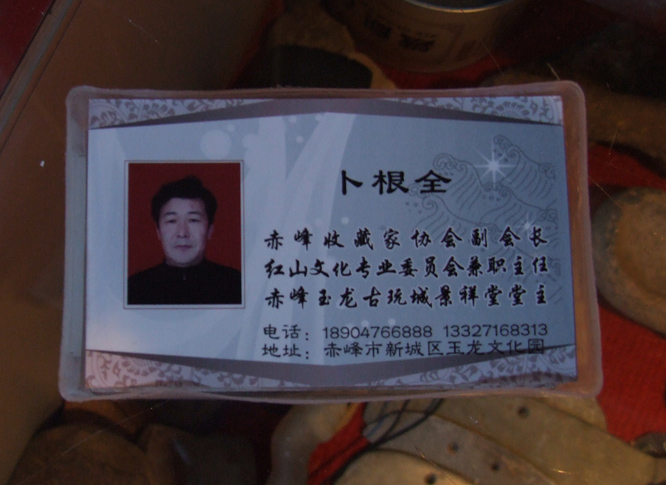 卜根全
赤峰收藏家协会副会长
红山文化专业委员会兼职主任
赤峰玉龙古玩城景祥堂堂主
电话：18904766888 13327168313
地址：赤峰市新城区玉龙文化园